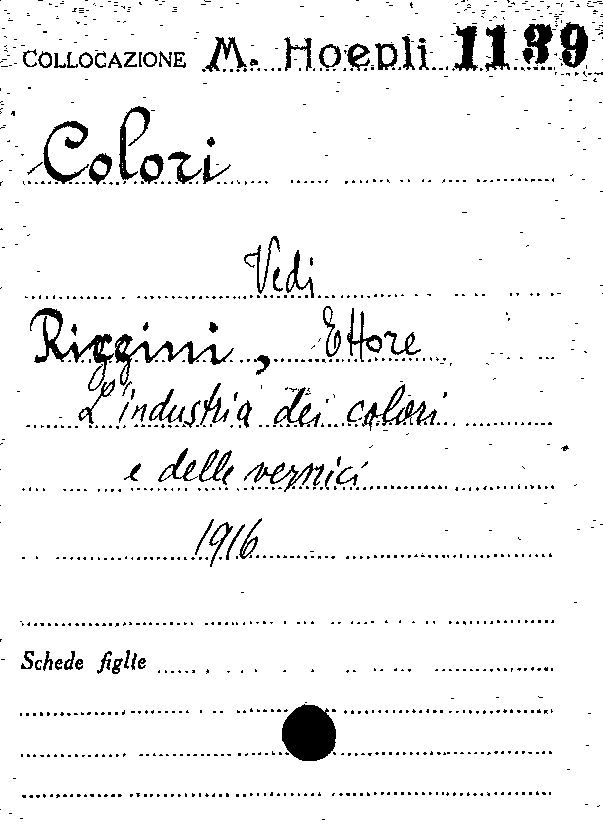 COLLOCAZIONE M. Hoepli 1139
Colori
Vedi
Riggini, Ettore
L'industria dei colori
e delle vernici
1916
Schede figlie